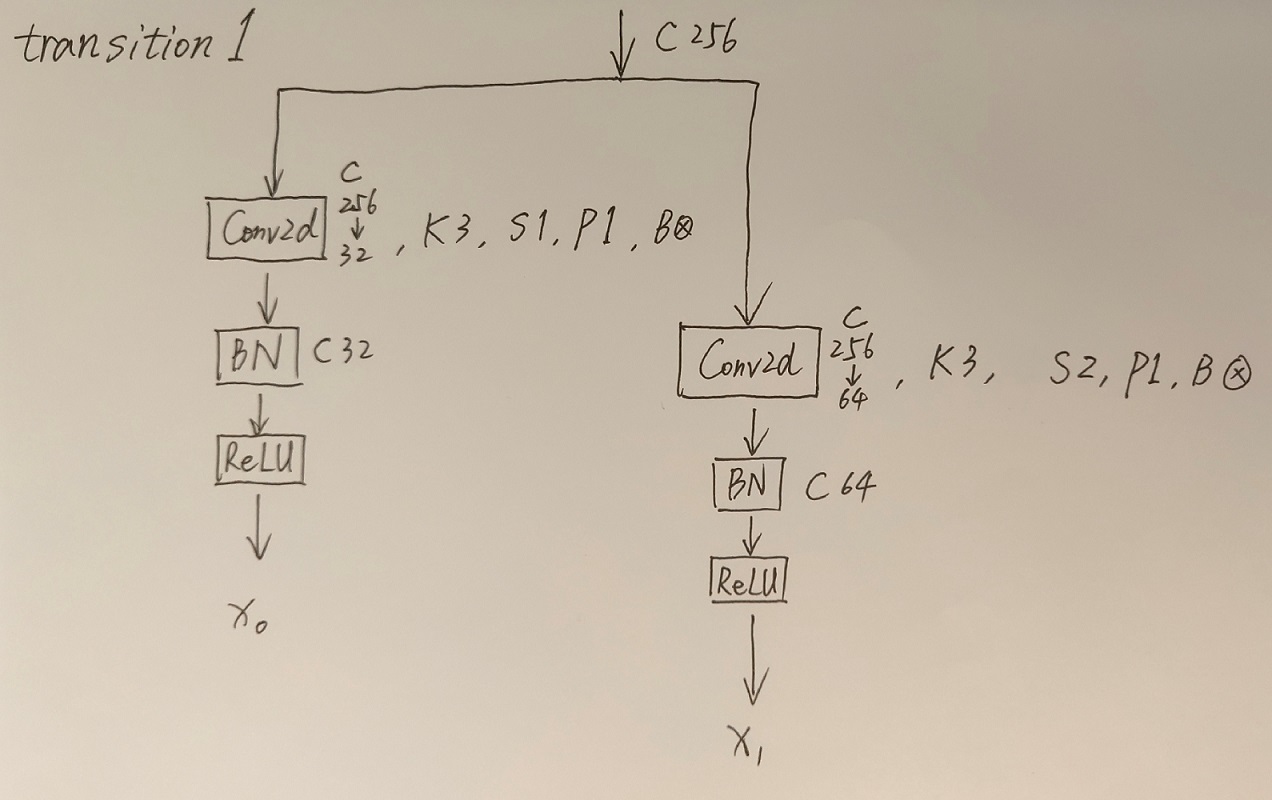 transition 1
C 256
Conv2d
C
256
↓
32
, K3, S1, P1, B⊗
BN
C 32
ReLU
x₀
Conv2d
C
256
↓
64
, K3, S2, P1, B⊗
BN
C 64
ReLU
x₁